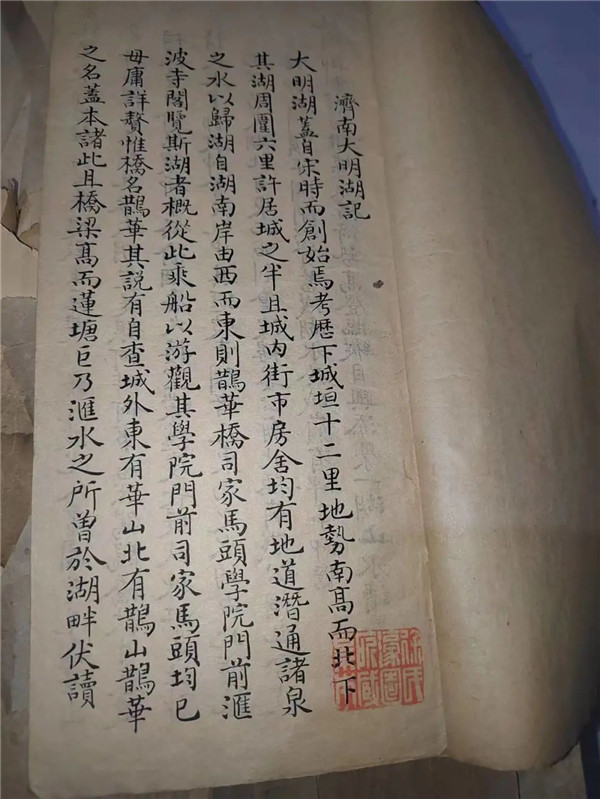 濟南大明湖記
大明湖蓋自宋時而創始焉考歷下城垣十二里地勢南高而北下
其湖周圍六里許居城之半且城內街市房舍均有地道潛通諸泉
之水以歸湖自湖南岸由西而東則鵲華橋司家馬頭學院門前滙
波寺閣覽斯湖者概從此乘船以游觀其學院門前司家馬頭均已
毋庸詳贅惟橋名鵲華其說有自查城外東有華山北有鵲山鵲華
之名蓋本諸此且橋梁高而蓮塘巨乃滙水之所曾於湖畔伏讀